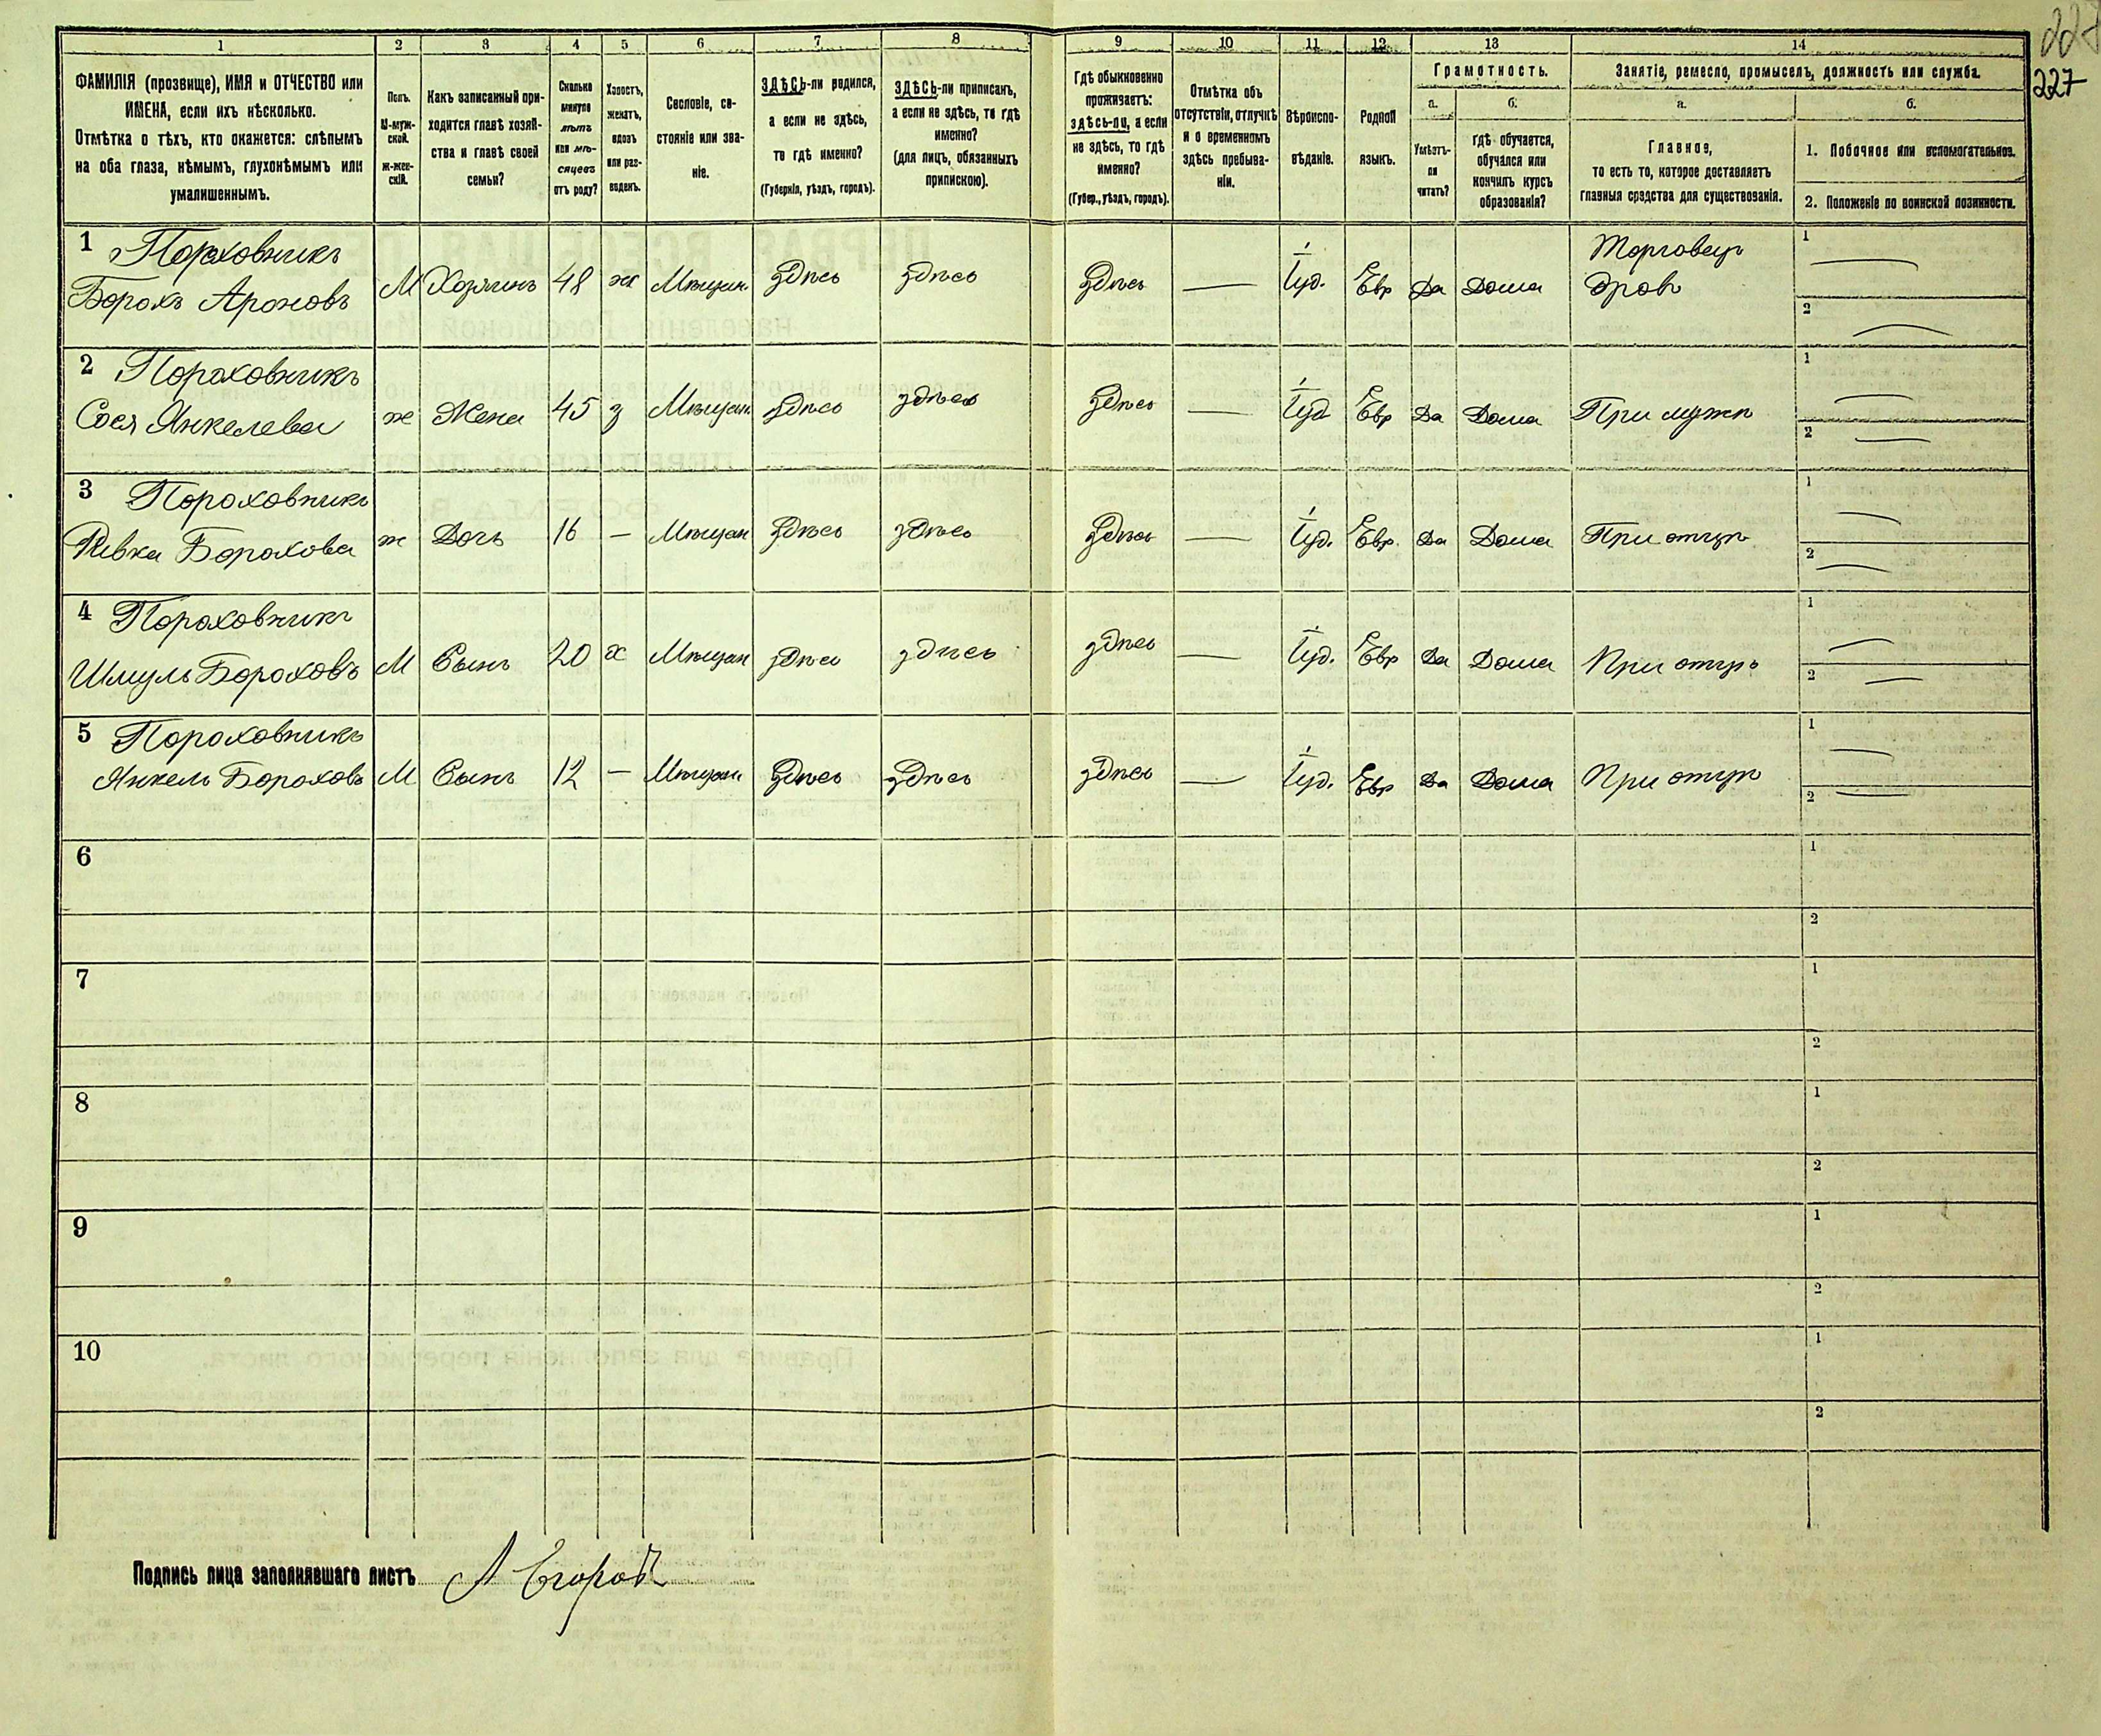 227
227
1 2 3 4 5 6 7 8 9 10 11 12 13 14
ФАМИЛІЯ (прозвище), ИМЯ и ОТЧЕСТВО или
ИМЕНА, если ихъ нѣсколько.
Отмѣтка о тѣхъ, кто окажется: слѣпымъ
на оба глаза, нѣмымъ, глухонѣмымъ или
умалишеннымъ.
Полъ.
М-муж-
ской.
ж-жен-
скій.
Какъ записанный при-
ходится главѣ хозяй-
ства и главѣ своей
семьи?
Сколько
минуло
лѣтъ
или мѣ-
сяцевъ
отъ роду?
Холостъ,
женатъ,
вдовъ
или раз-
веденъ.
Сословіе, со-
стояніе или зва-
ніе.
ЗДѢСЬ-ли родился,
а если не здѣсь,
то гдѣ именно?
(Губернія, уѣздъ, городъ).
ЗДѢСЬ-ли приписанъ,
а если не здѣсь, то гдѣ
именно?
(для лицъ, обязанныхъ
припискою).
Гдѣ обыкновенно
проживаетъ:
здѣсь-ли, а если
не здѣсь, то гдѣ
именно?
(Губер., уѣздъ, городъ).
Отмѣтка объ
отсутствіи, отлучкѣ
и о временномъ
здѣсь пребыва-
ніи.
Вѣроиспо-
вѣданіе.
Родной
языкъ.
Грамотность.
а.
Умѣетъ-
ли
читать?
б.
гдѣ обучается,
обучался или
кончилъ курсъ
образованія?
Занятіе, ремесло, промыселъ, должность или служба.
а.
Главное,
то есть то, которое доставляетъ
главныя средства для существованія.
б.
1. Побочное или вспомогательное.
2. Положеніе по воинской повинности.
1 Пороховникъ Торговецъ 1 —
Борохъ Ароновъ М Хозяинъ 48 ж Мѣщан. здѣсь здѣсь здѣсь — Іуд. Евр Да Дома дровъ 2 —
2 Пороховникъ 1 —
Сося Янкелева ж Жена 45 з Мѣщан. здѣсь здѣсь здѣсь — Іуд Евр Да Дома При мужѣ 2 —
3 Пороховникъ 1 —
Ривка Борохова ж Дочь 16 — Мѣщан здѣсь здѣсь здѣсь — Іуд. Евр. Да Дома При отцѣ 2 —
4 Пороховникъ 1 —
Шмуль Бороховъ М Сынъ 20 х Мѣщан здѣсь здѣсь здѣсь — Іуд. Евр Да Дома При отцѣ 2 —
5 Пороховникъ 1 —
Янкель Бороховъ М Сынъ 12 — Мѣщан здѣсь здѣсь здѣсь — Іуд. Евр Да Дома При отцѣ 2 —
6 1
2
7 1
2
8 1
2
9 1
2
10 1
2
Подпись лица заполнявшаго листъ